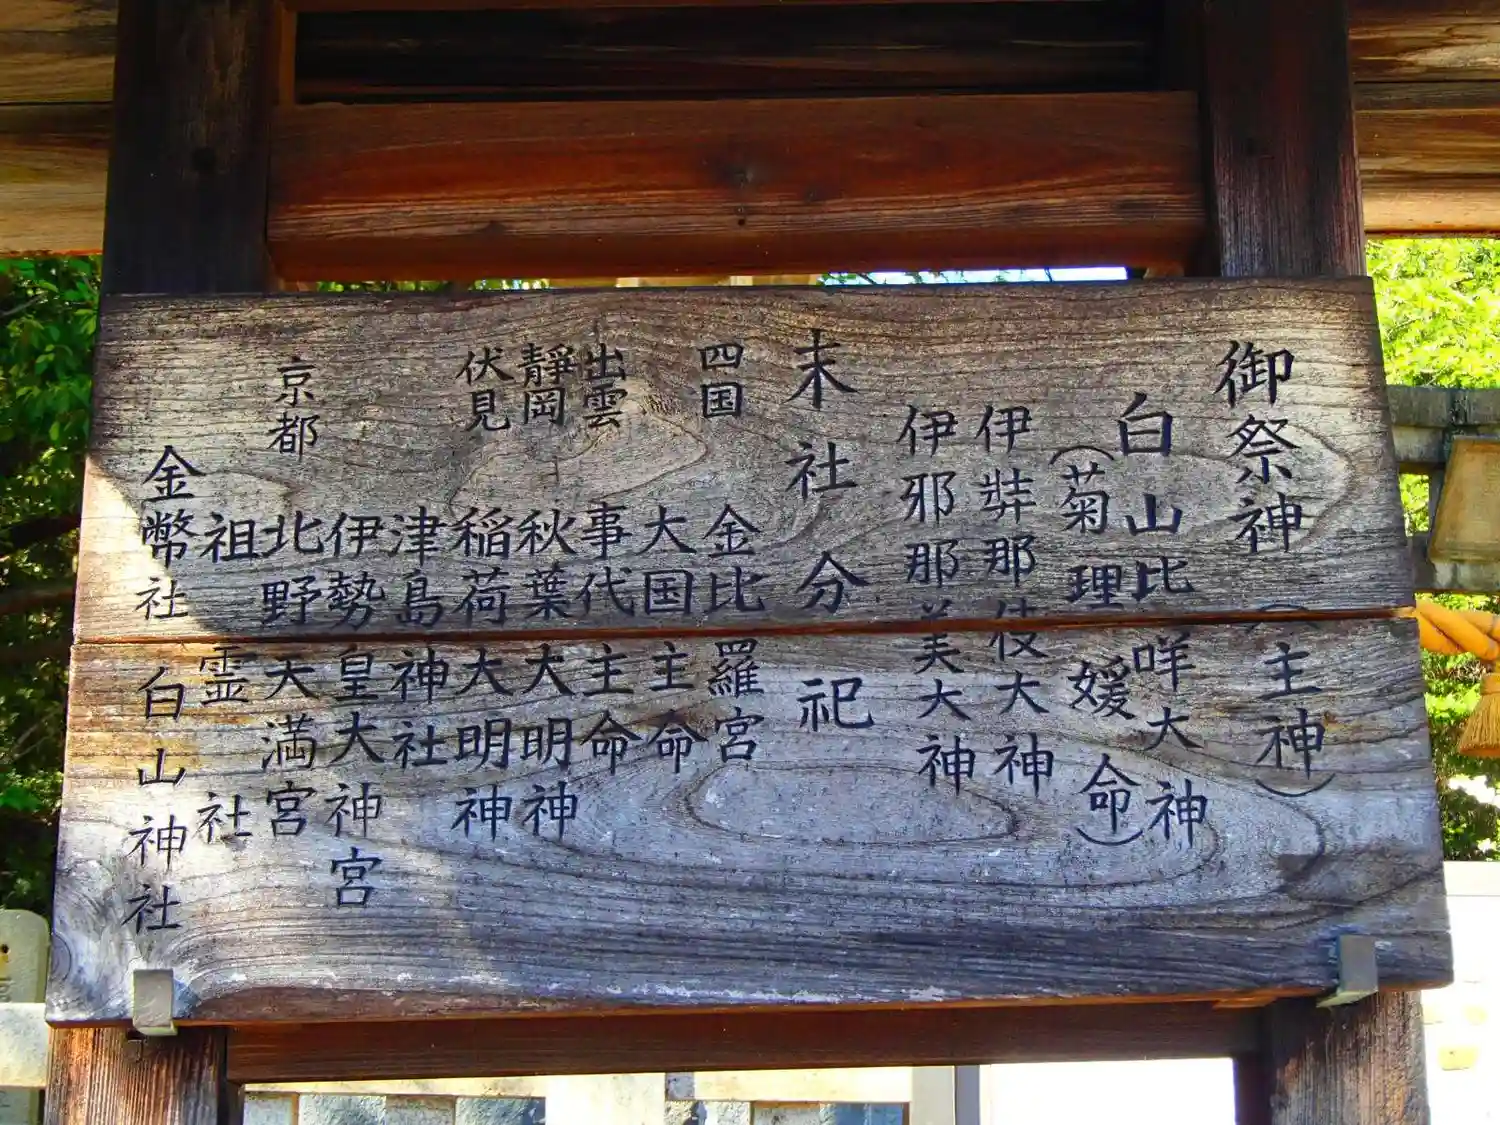 御祭神(主神)
白山比咩大神
(菊理媛命)
伊弉那伎大神
伊邪那美大神
末社分祀
四国 金比羅宮
大国主命
出雲 事代主命
靜岡 秋葉大明神
伏見 稲荷大明神
津島神社
伊勢皇大神宮
京都 北野天満宮
祖霊社
金幣社 白山神社